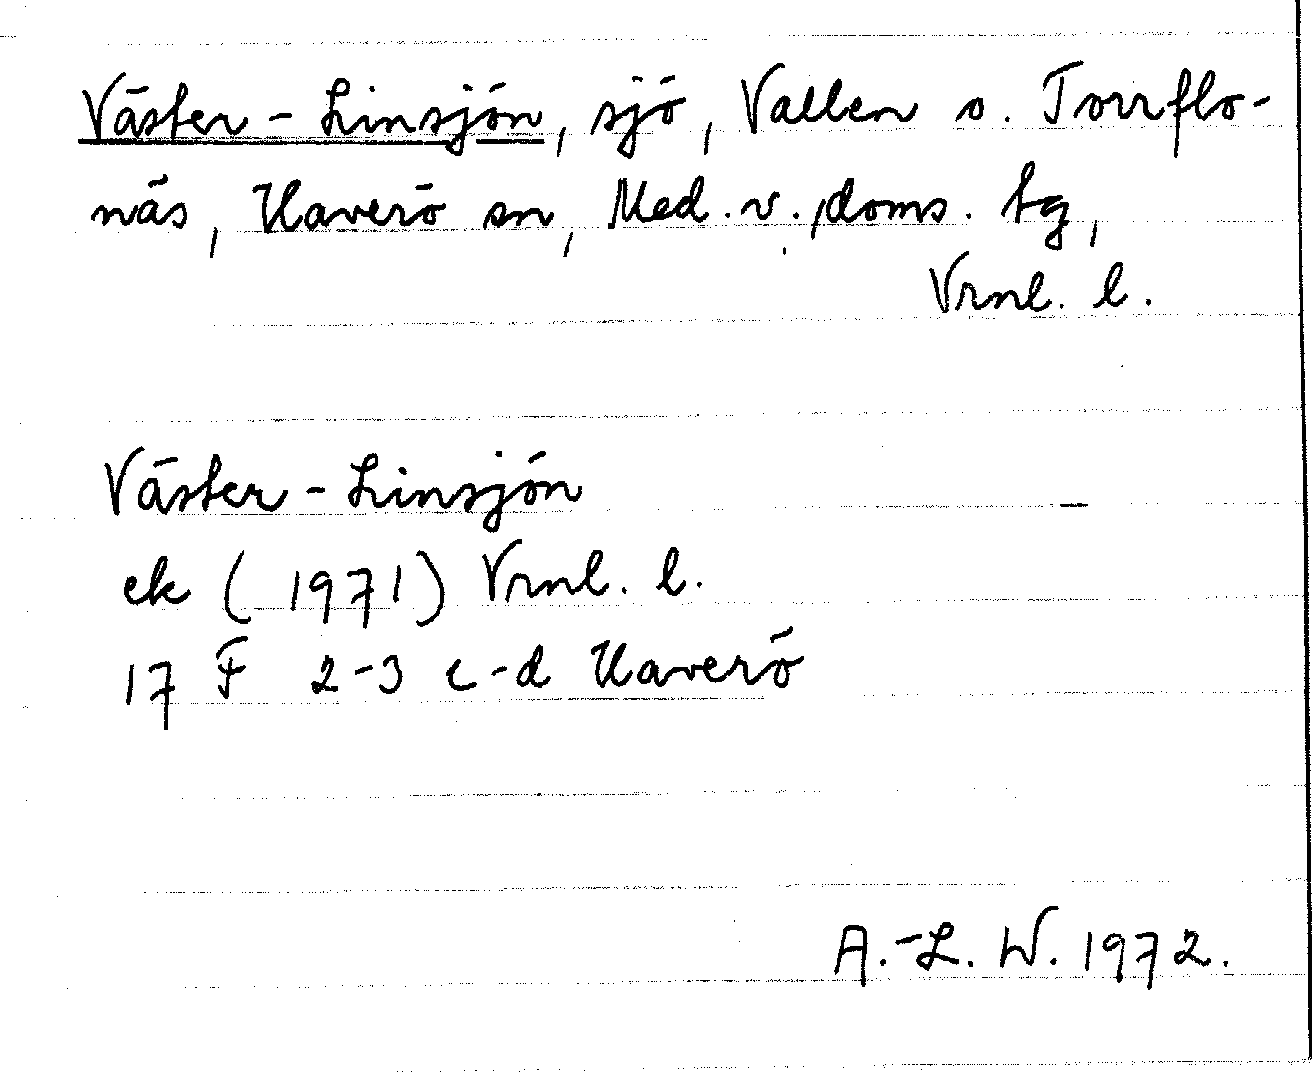 Väster-Linsjön, sjö, Vallen o. Torrflo-
näs, Haverö sn, Med. v. doms. tg,
Vrnl. l.
Väster-Linsjön
ek (1971) Vrnl. l.
17 F 2-3 c-d Haverö
A.-L. W. 1972.